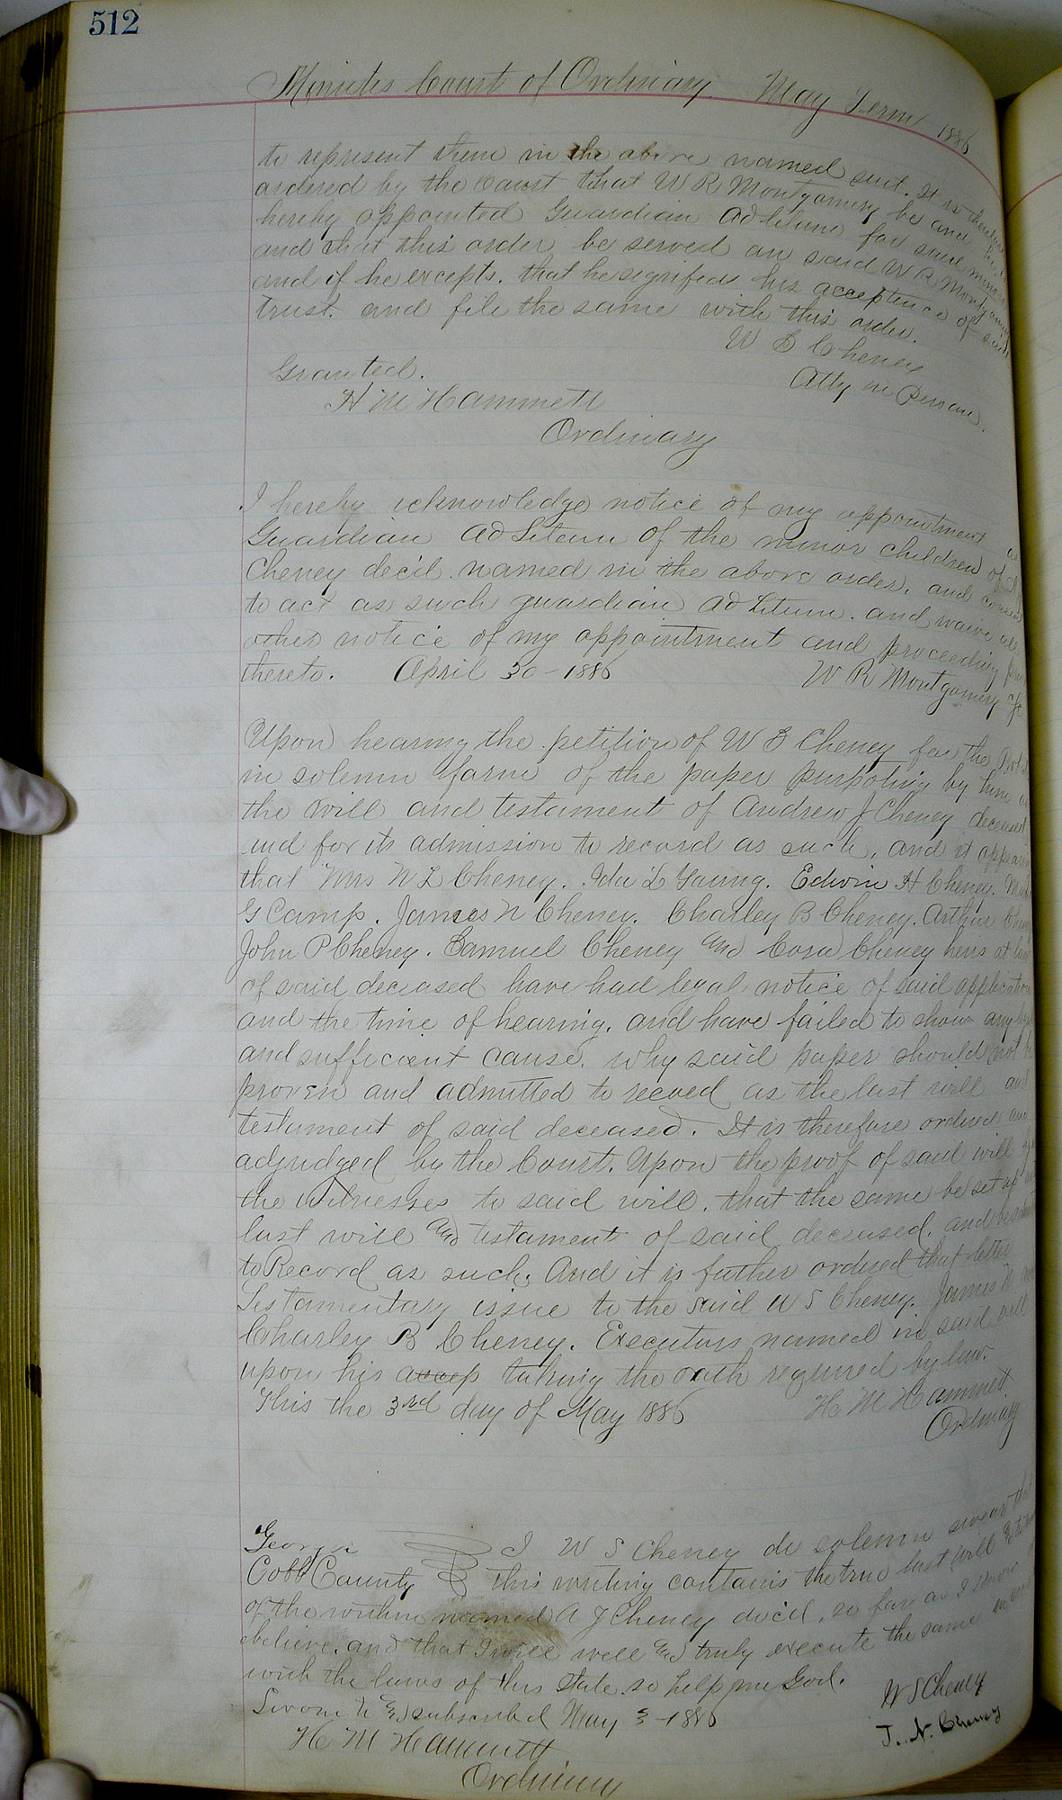 512
Minutes Court of Ordinary May Term 1886
to represent them in the above named suit. It is
ordered by the Court that W R Montgomery be and
hereby appointed Guardian ad litum for said minors
and that this order be served on said W R Montgomery
and if he excepts. that he signifies his acceptence of said
trust. and file the same with this order.
W S Cheney
Atty in Person.
Granted.
H M Hammett
Ordinary
I hereby acknowledge notice of my appointment
Guardian ad Litum of the minor children of
Cheney decd. named in the above order. and
to act as such guardian ad Litum. and waive
other notice of my appointment and proceeding
thereto. April 30-1886 W R Montgomery
Upon hearing the petition of W S Cheney for the
in solemn form of the paper purpoting by him
the will and testament of Andrew J Cheney deceased
and for its admission to record as such. and it
that Mrs N L Cheney. Ida L Young. Edwin H Cheney.
G Camp. James N Cheney. Charley B Cheney. Arthur
John P Cheney. Samuel Cheney and Cora Cheney heirs at
of said deceased have had legal notice of said application
and the time of hearing. and have failed to show any
and sufficient cause. why said paper should not
proven and admitted to record as the last will and
testament of said deceased. It is therefore ordered and
adjudged by the Court. Upon the proof of said will
the Witnesses to said will. that the same be set up
last will and testament of said deceased. and
to Record as such. And it is futher ordered that letters
Testamentary issue to the said W S Cheney. James N
Charley B Cheney. Executors named in said will
upon his accep taking the oath required by law.
This the 3rd day of May 1886 H M Hammett
Ordinary
Georgia I W S Cheney do solemn swear
Cobb County This writing contains the true last will &
of the within named A J Cheney dec'd. so far as I know
believe. and that I will well and truly execute the same
with the laws of this state. so help me God.
W S Cheney
Sworn to & subscribed May 3-1886
J. N. Cheney
H M Hammett
Ordinary